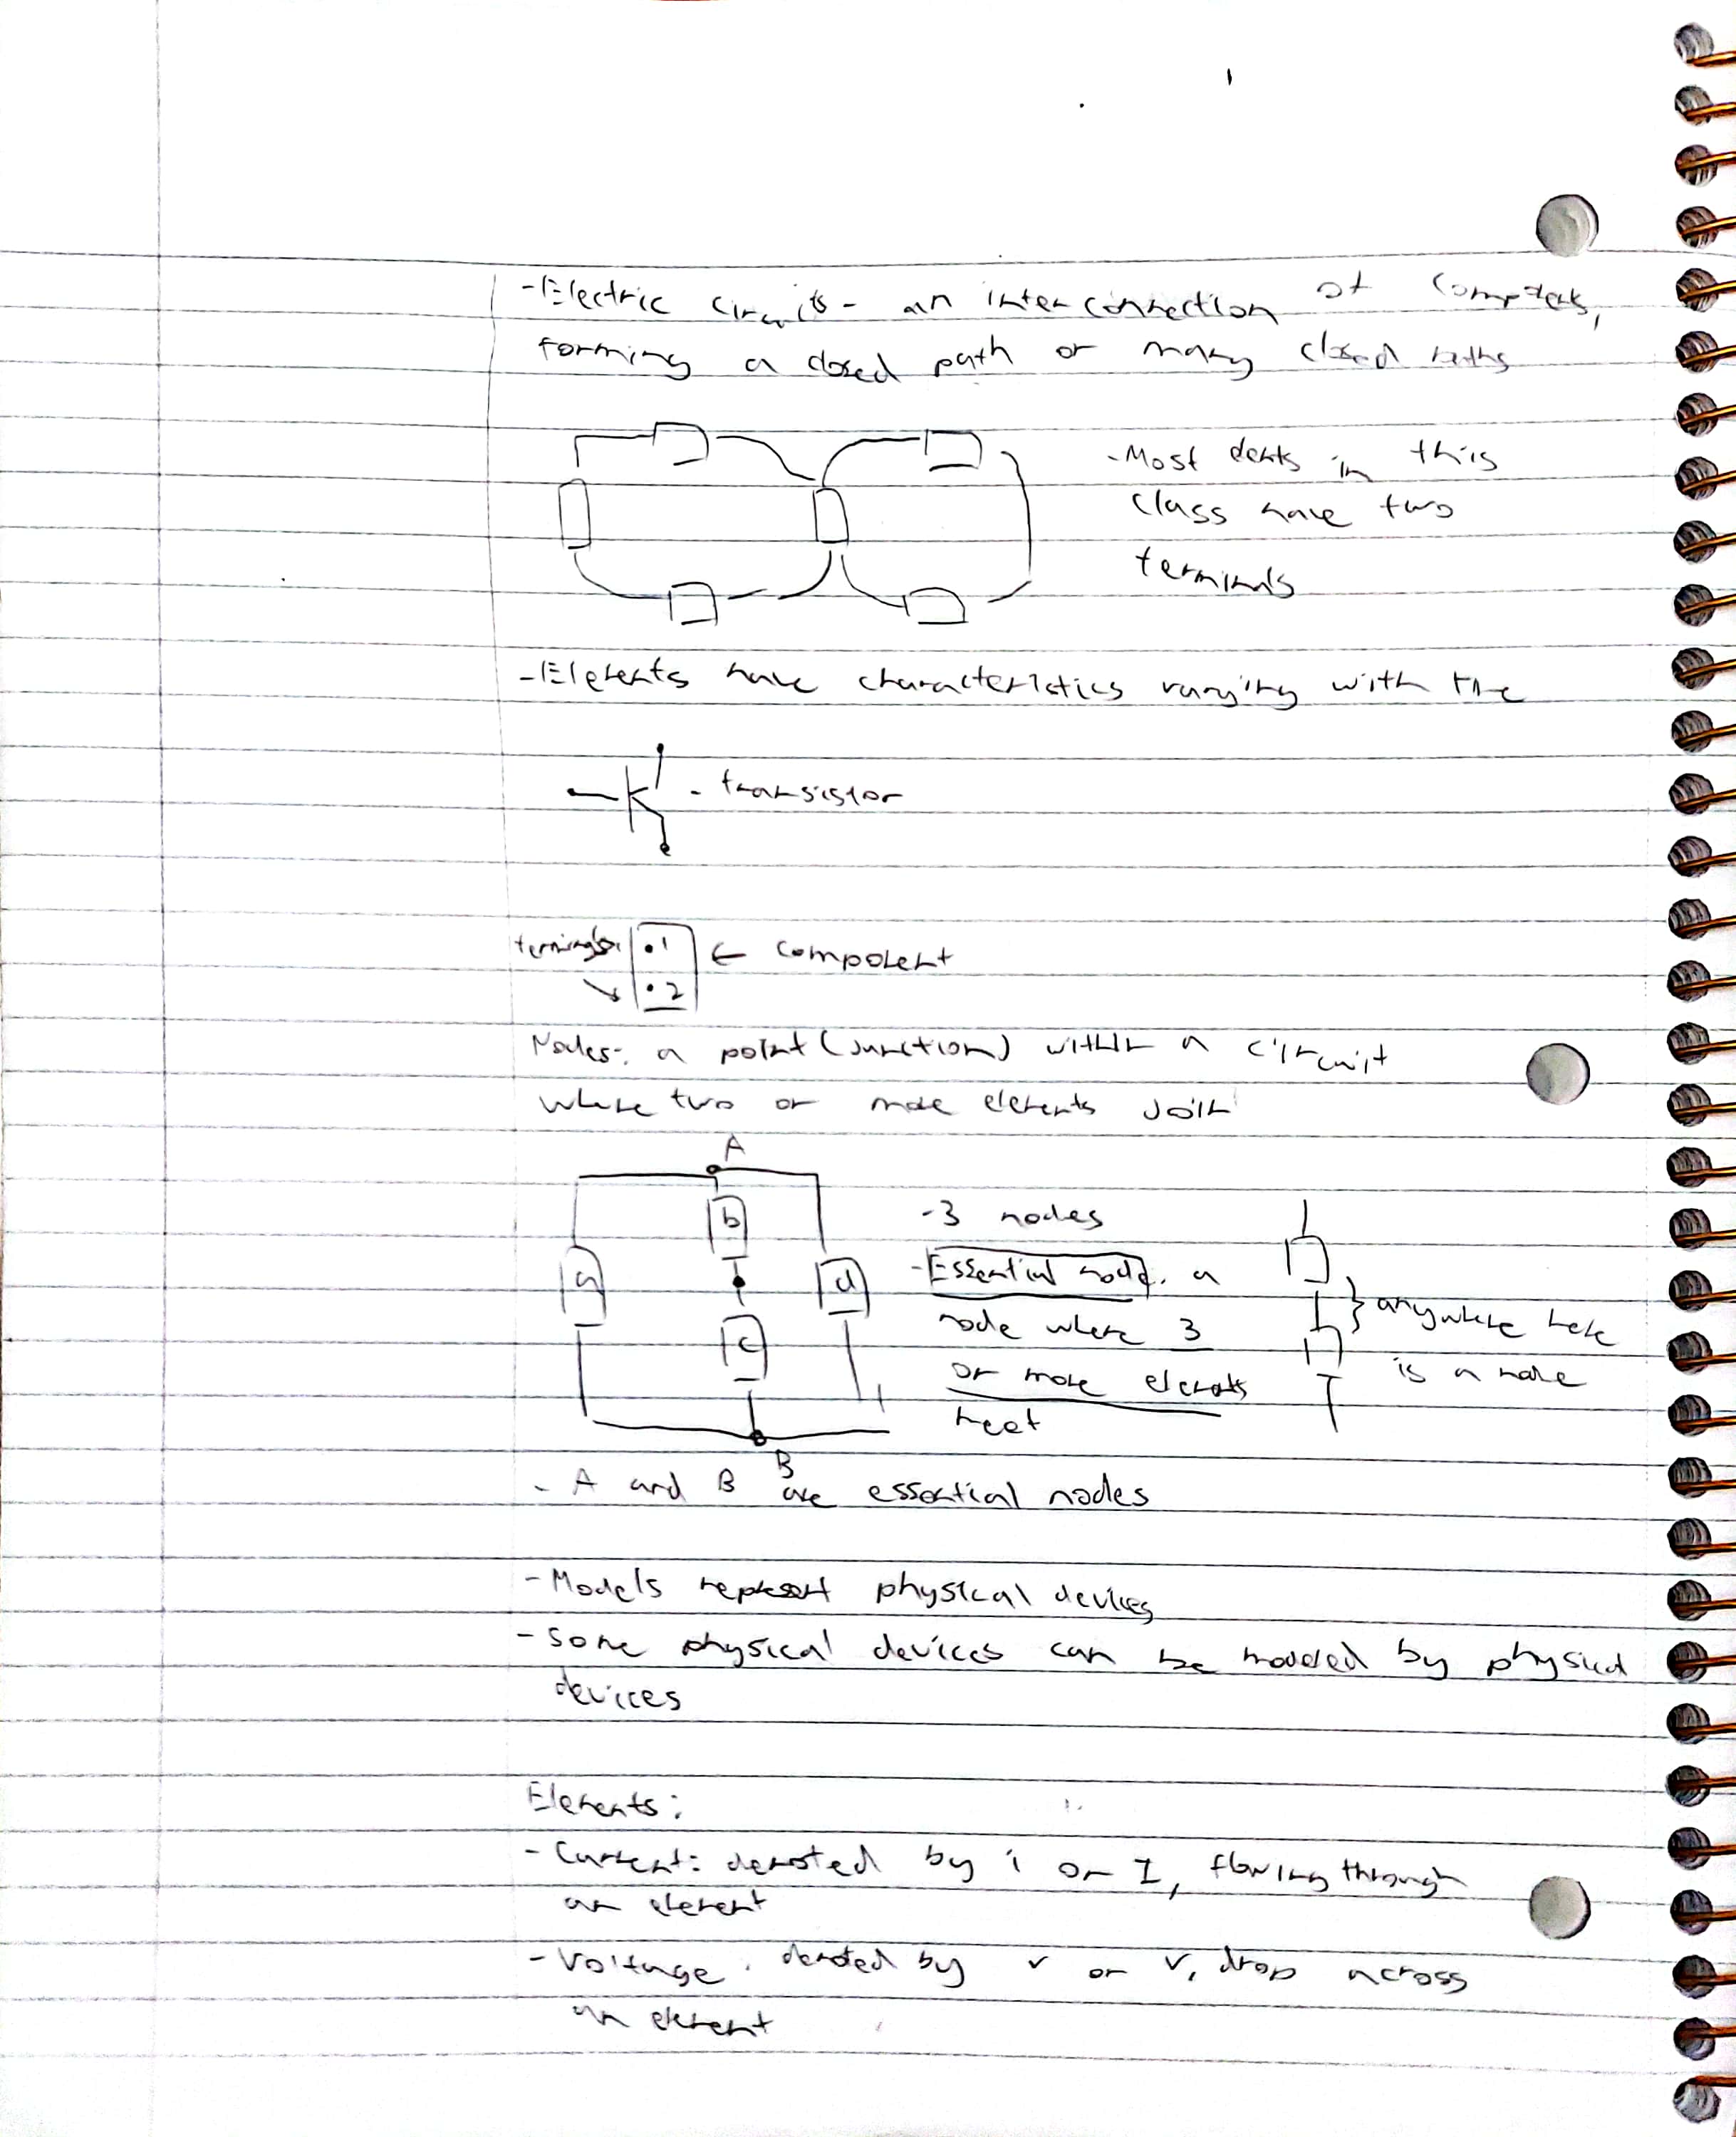 -Electric circuits - an interconnection of components,
forming a closed path or many closed paths
-Most elements in this
class have two
terminals
-Elements have characteristics varying with the
- transistor
terminals
.1
← component
.2
Nodes: a point (junction) within a circuit
where two or more elements join
A
b
a
d
c
B
-3 nodes
-Essential node. a
node where 3
or more elements
meet
} anywhere here
is a node
- A and B are essential nodes
-Models represent physical devices
-some physical devices can be modeled by physical
devices
Elements:
- Current: denoted by i or I, flowing through
an element
- Voltage. denoted by v or V, drop across
an element